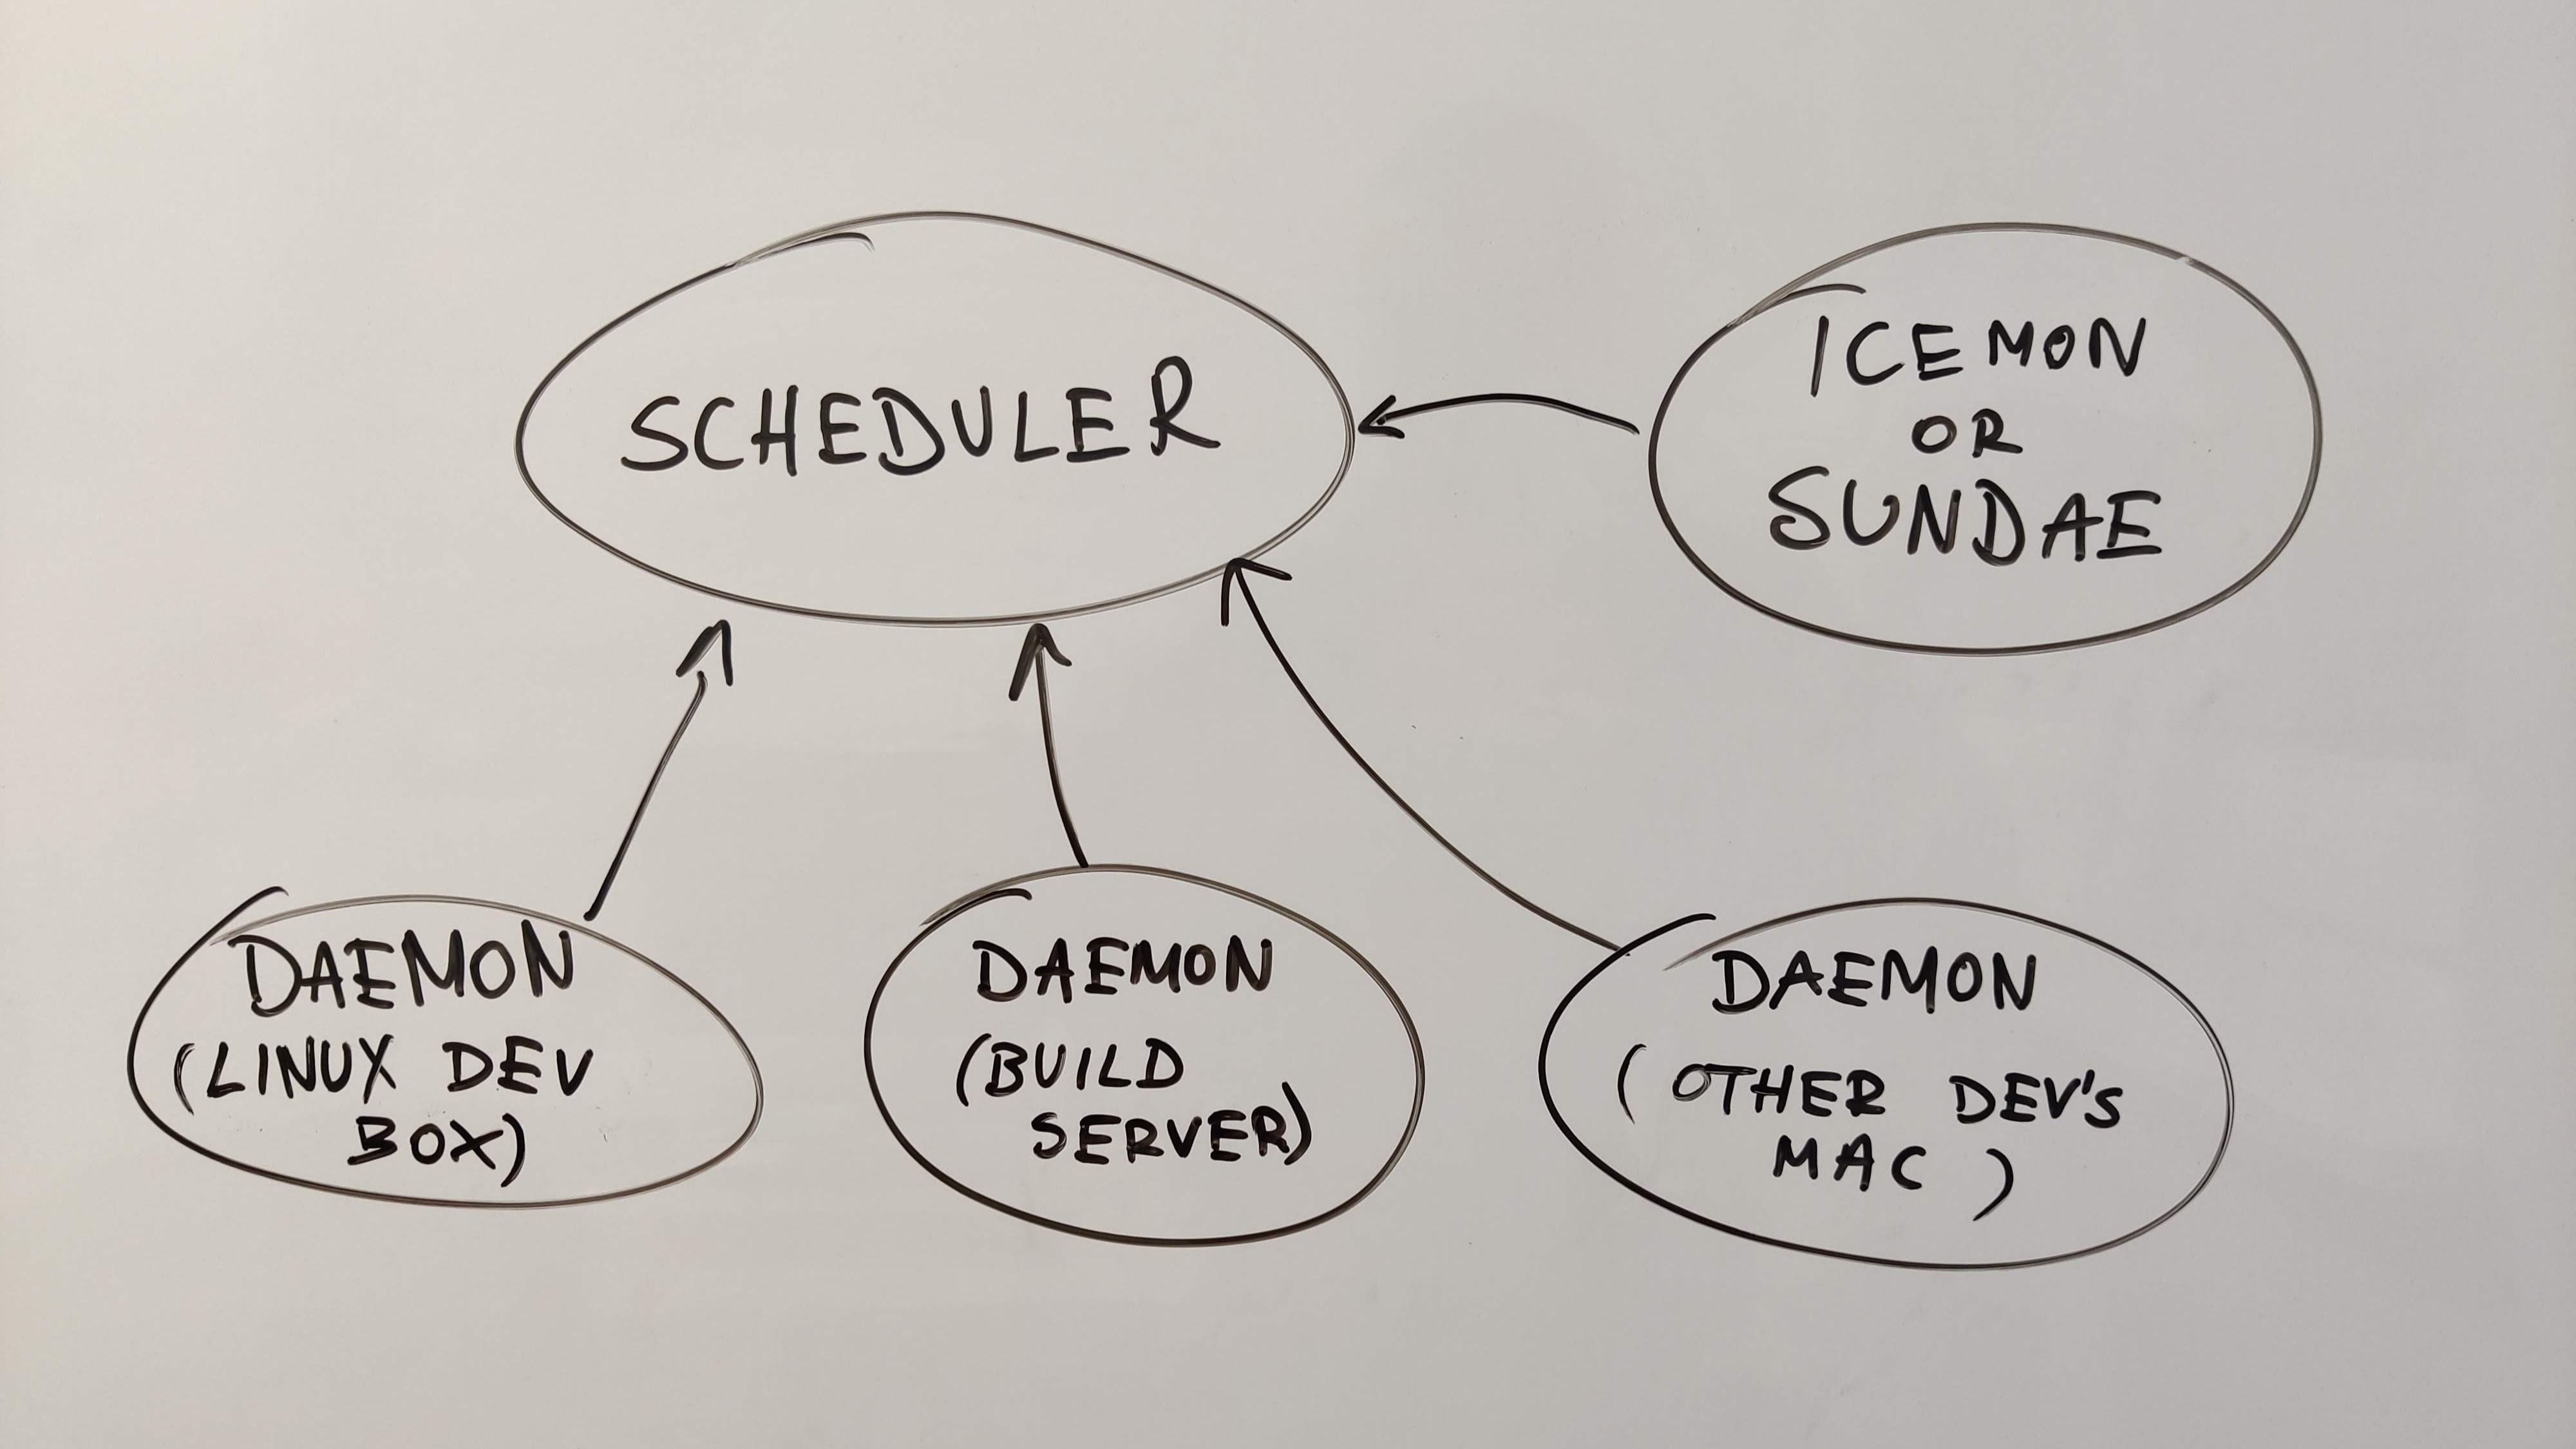 SCHEDULER
ICEMON
OR
SUNDAE
DAEMON
(LINUX DEV
BOX)
DAEMON
(BUILD
SERVER)
DAEMON
(OTHER DEV'S
MAC)